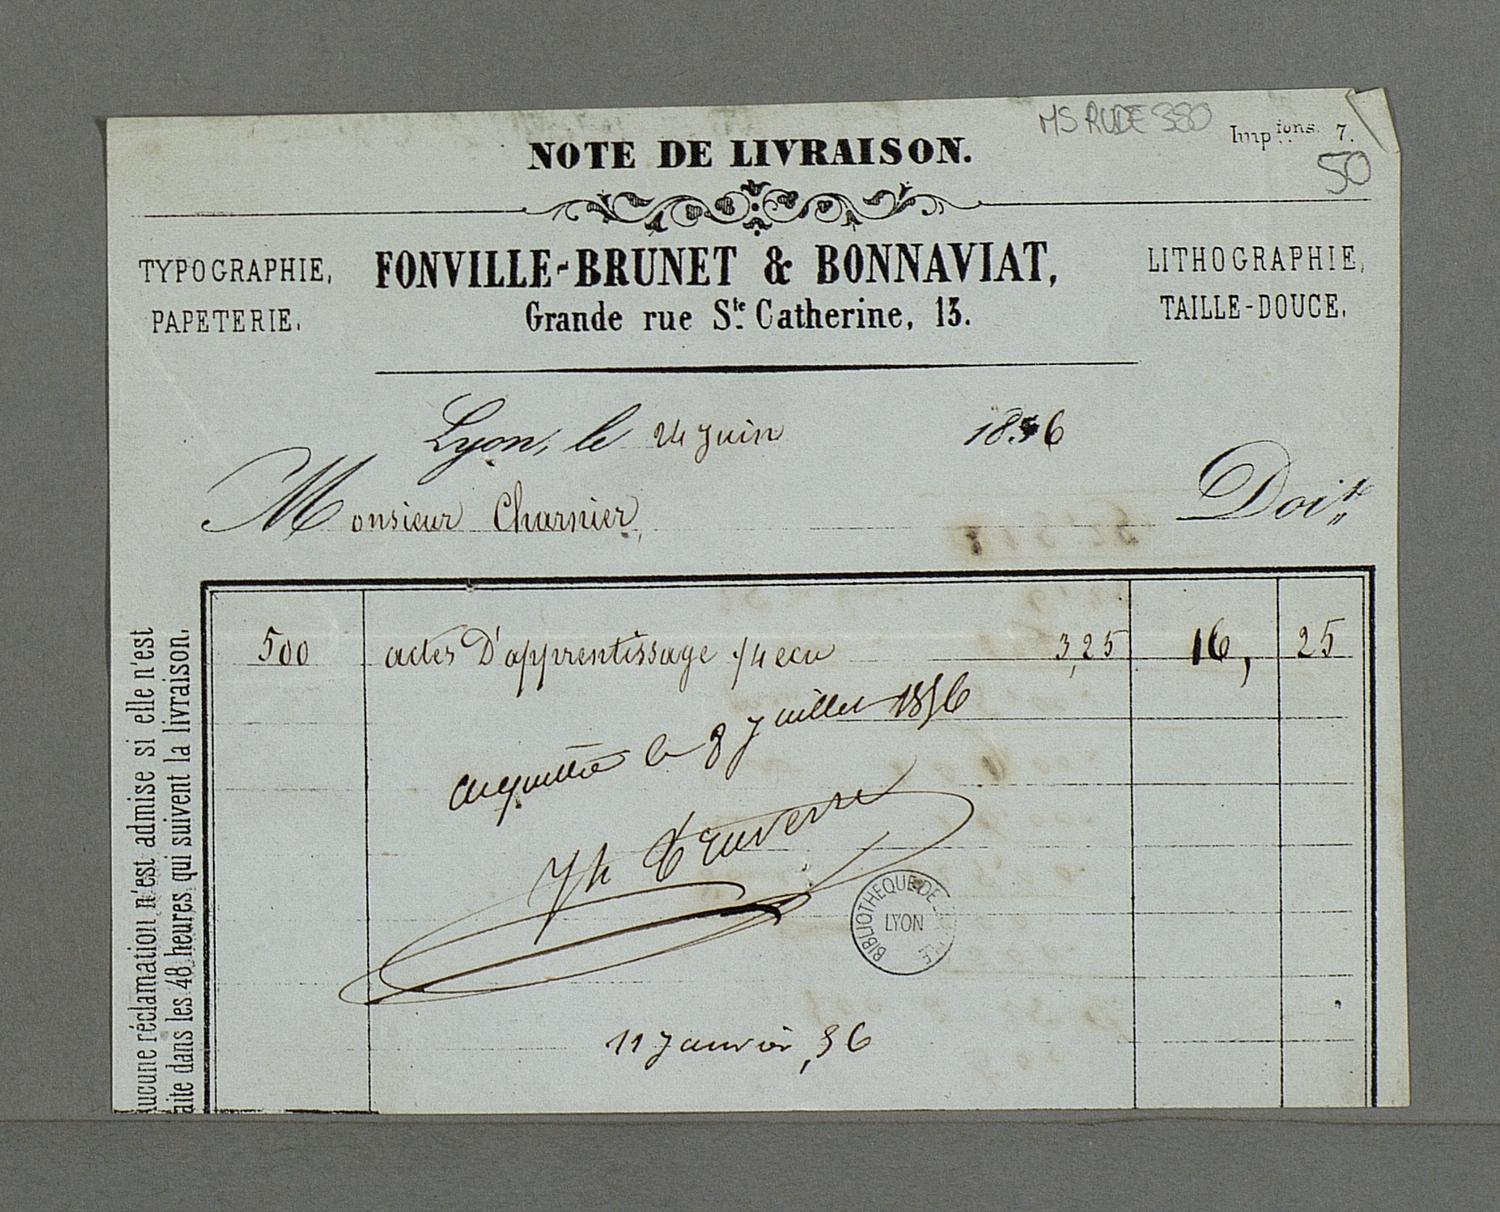 MS RUDE 380
Imp.ions. 7.
50
NOTE DE LIVRAISON.
TYPOGRAPHIE,
PAPETERIE.
FONVILLE-BRUNET & BONNAVIAT,
Grande rue Ste. Catherine, 13.
LITHOGRAPHIE,
TAILLE-DOUCE.
Lyon, le 24 juin 1856
Monsieur Charnier, Doit
500 actes D'apprentissage 1/4 ecu 3,25 16, 25
acquitté le 8 juillet 1856
11 Janvier, 56
BIBLIOTHEQUE DE LA VILLE
LYON
Aucune réclamation n'est admise si elle n'est
faite dans les 48 heures qui suivent la livraison.